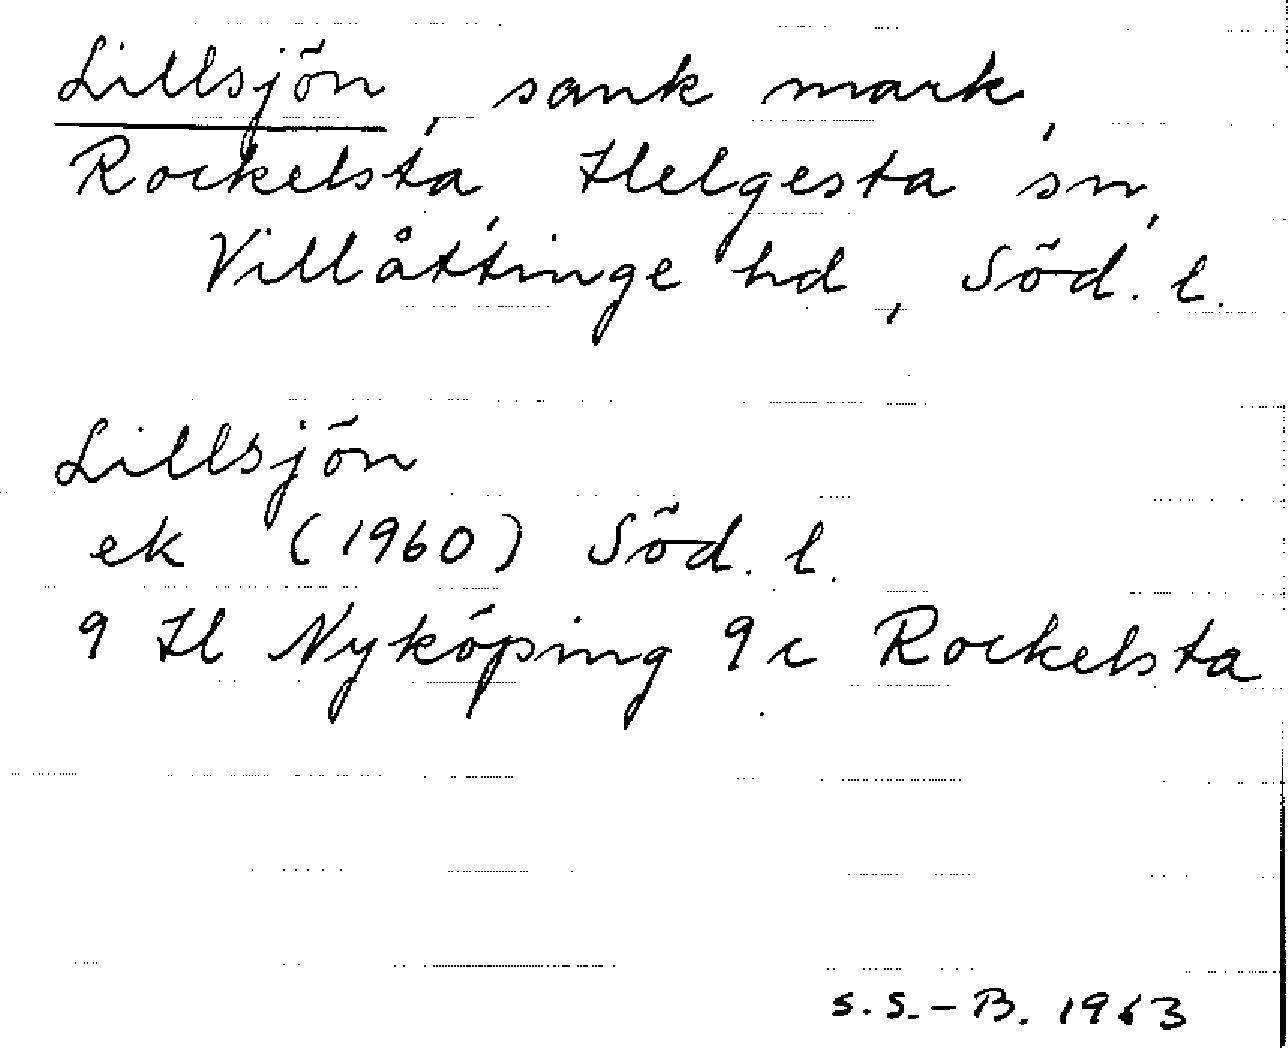 Lillsjön, sank mark,
Rockelsta, Helgesta sn,
Villåttinge hd, Söd. l.
Lillsjön
ek (1960) Söd. l.
9 H Nyköping 9 c Rockelsta
S.S.-B. 1963